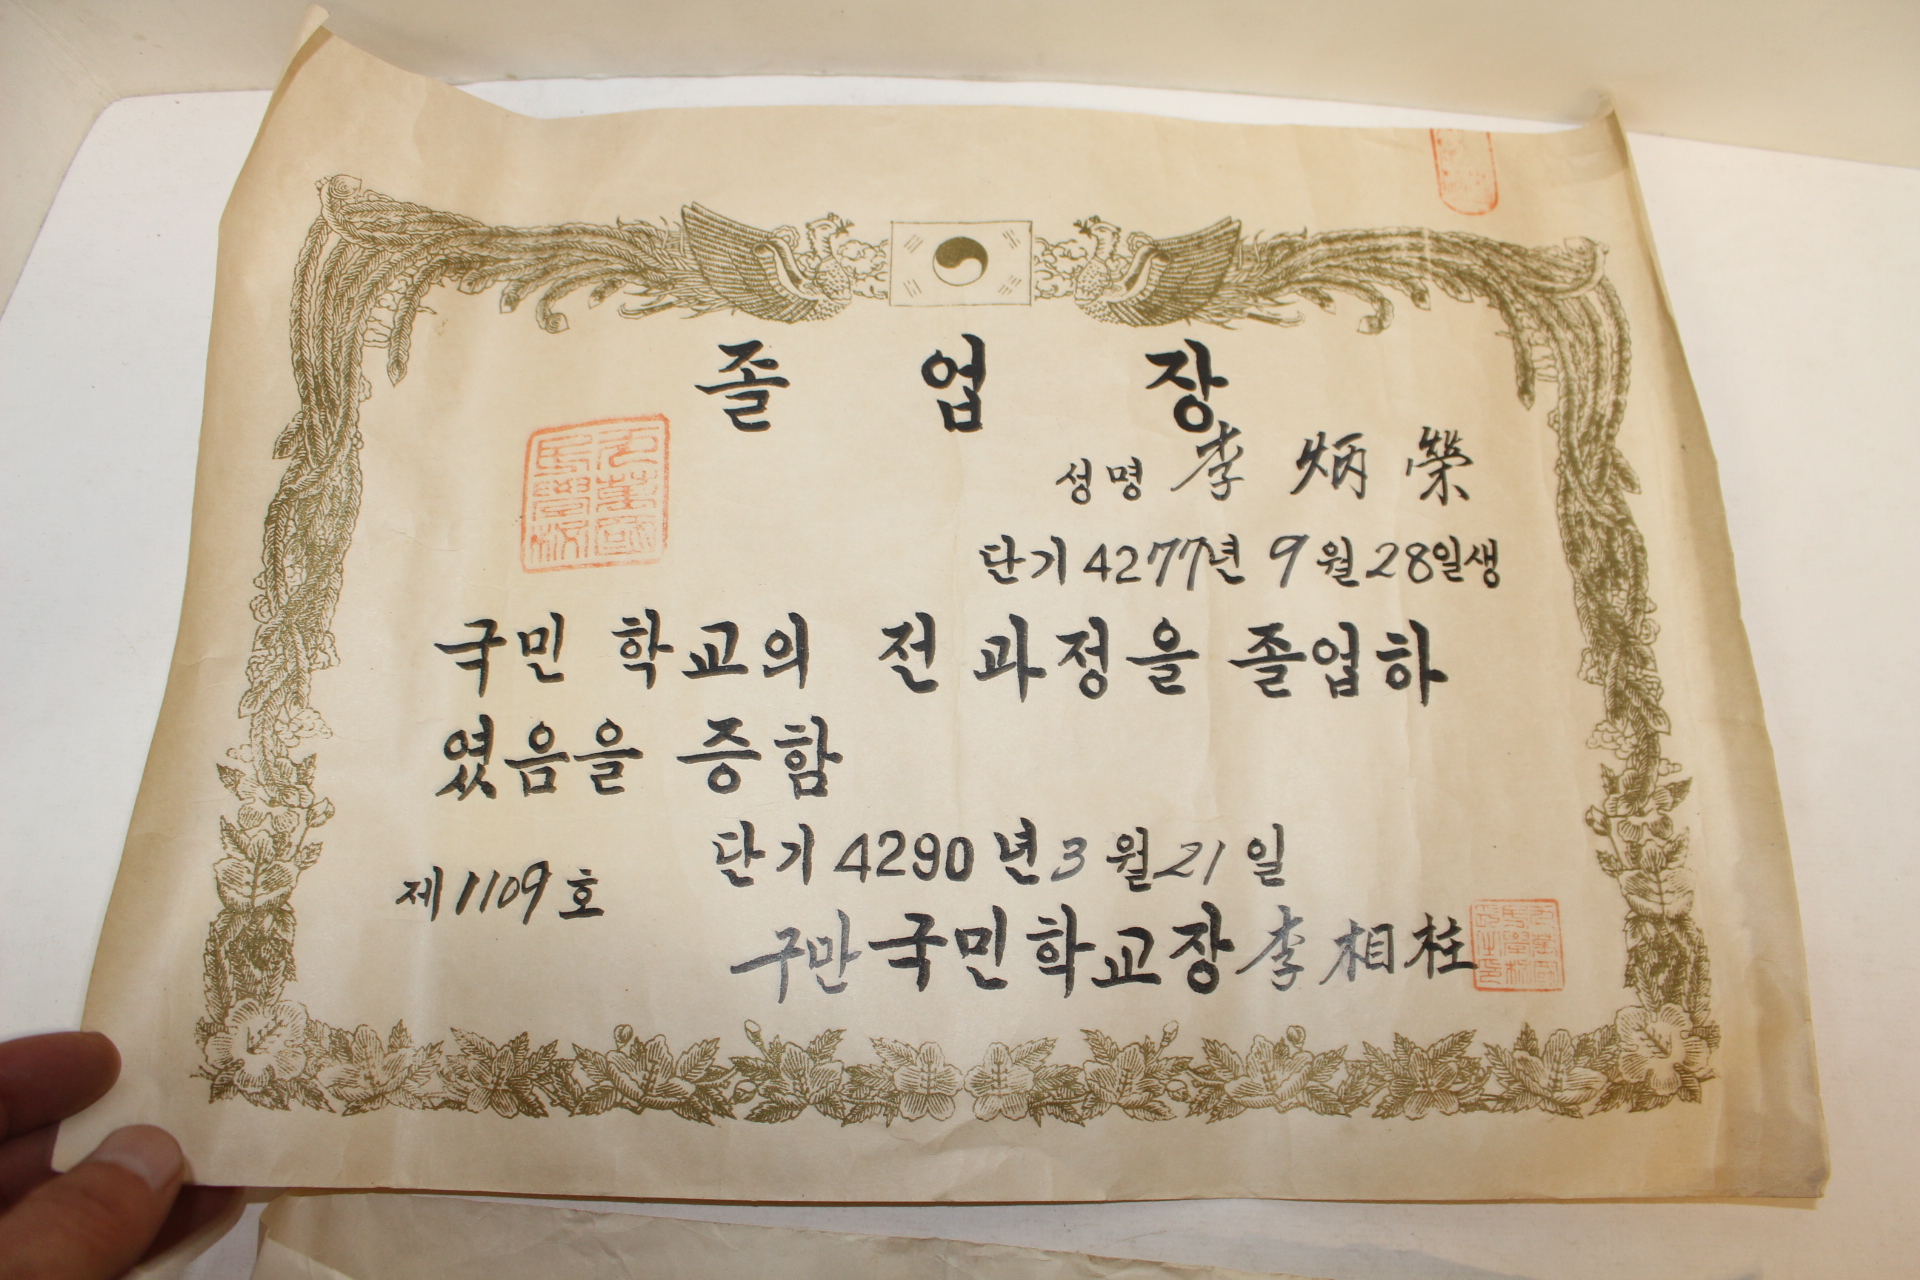 졸 업 장
성명 李 炳 榮
단기 4277년 9월 28일생
국민 학교의 전 과정을 졸업하
였음을 증함
단기 4290년 3월 21일
제 1109 호
구만국민학교장 李相柱